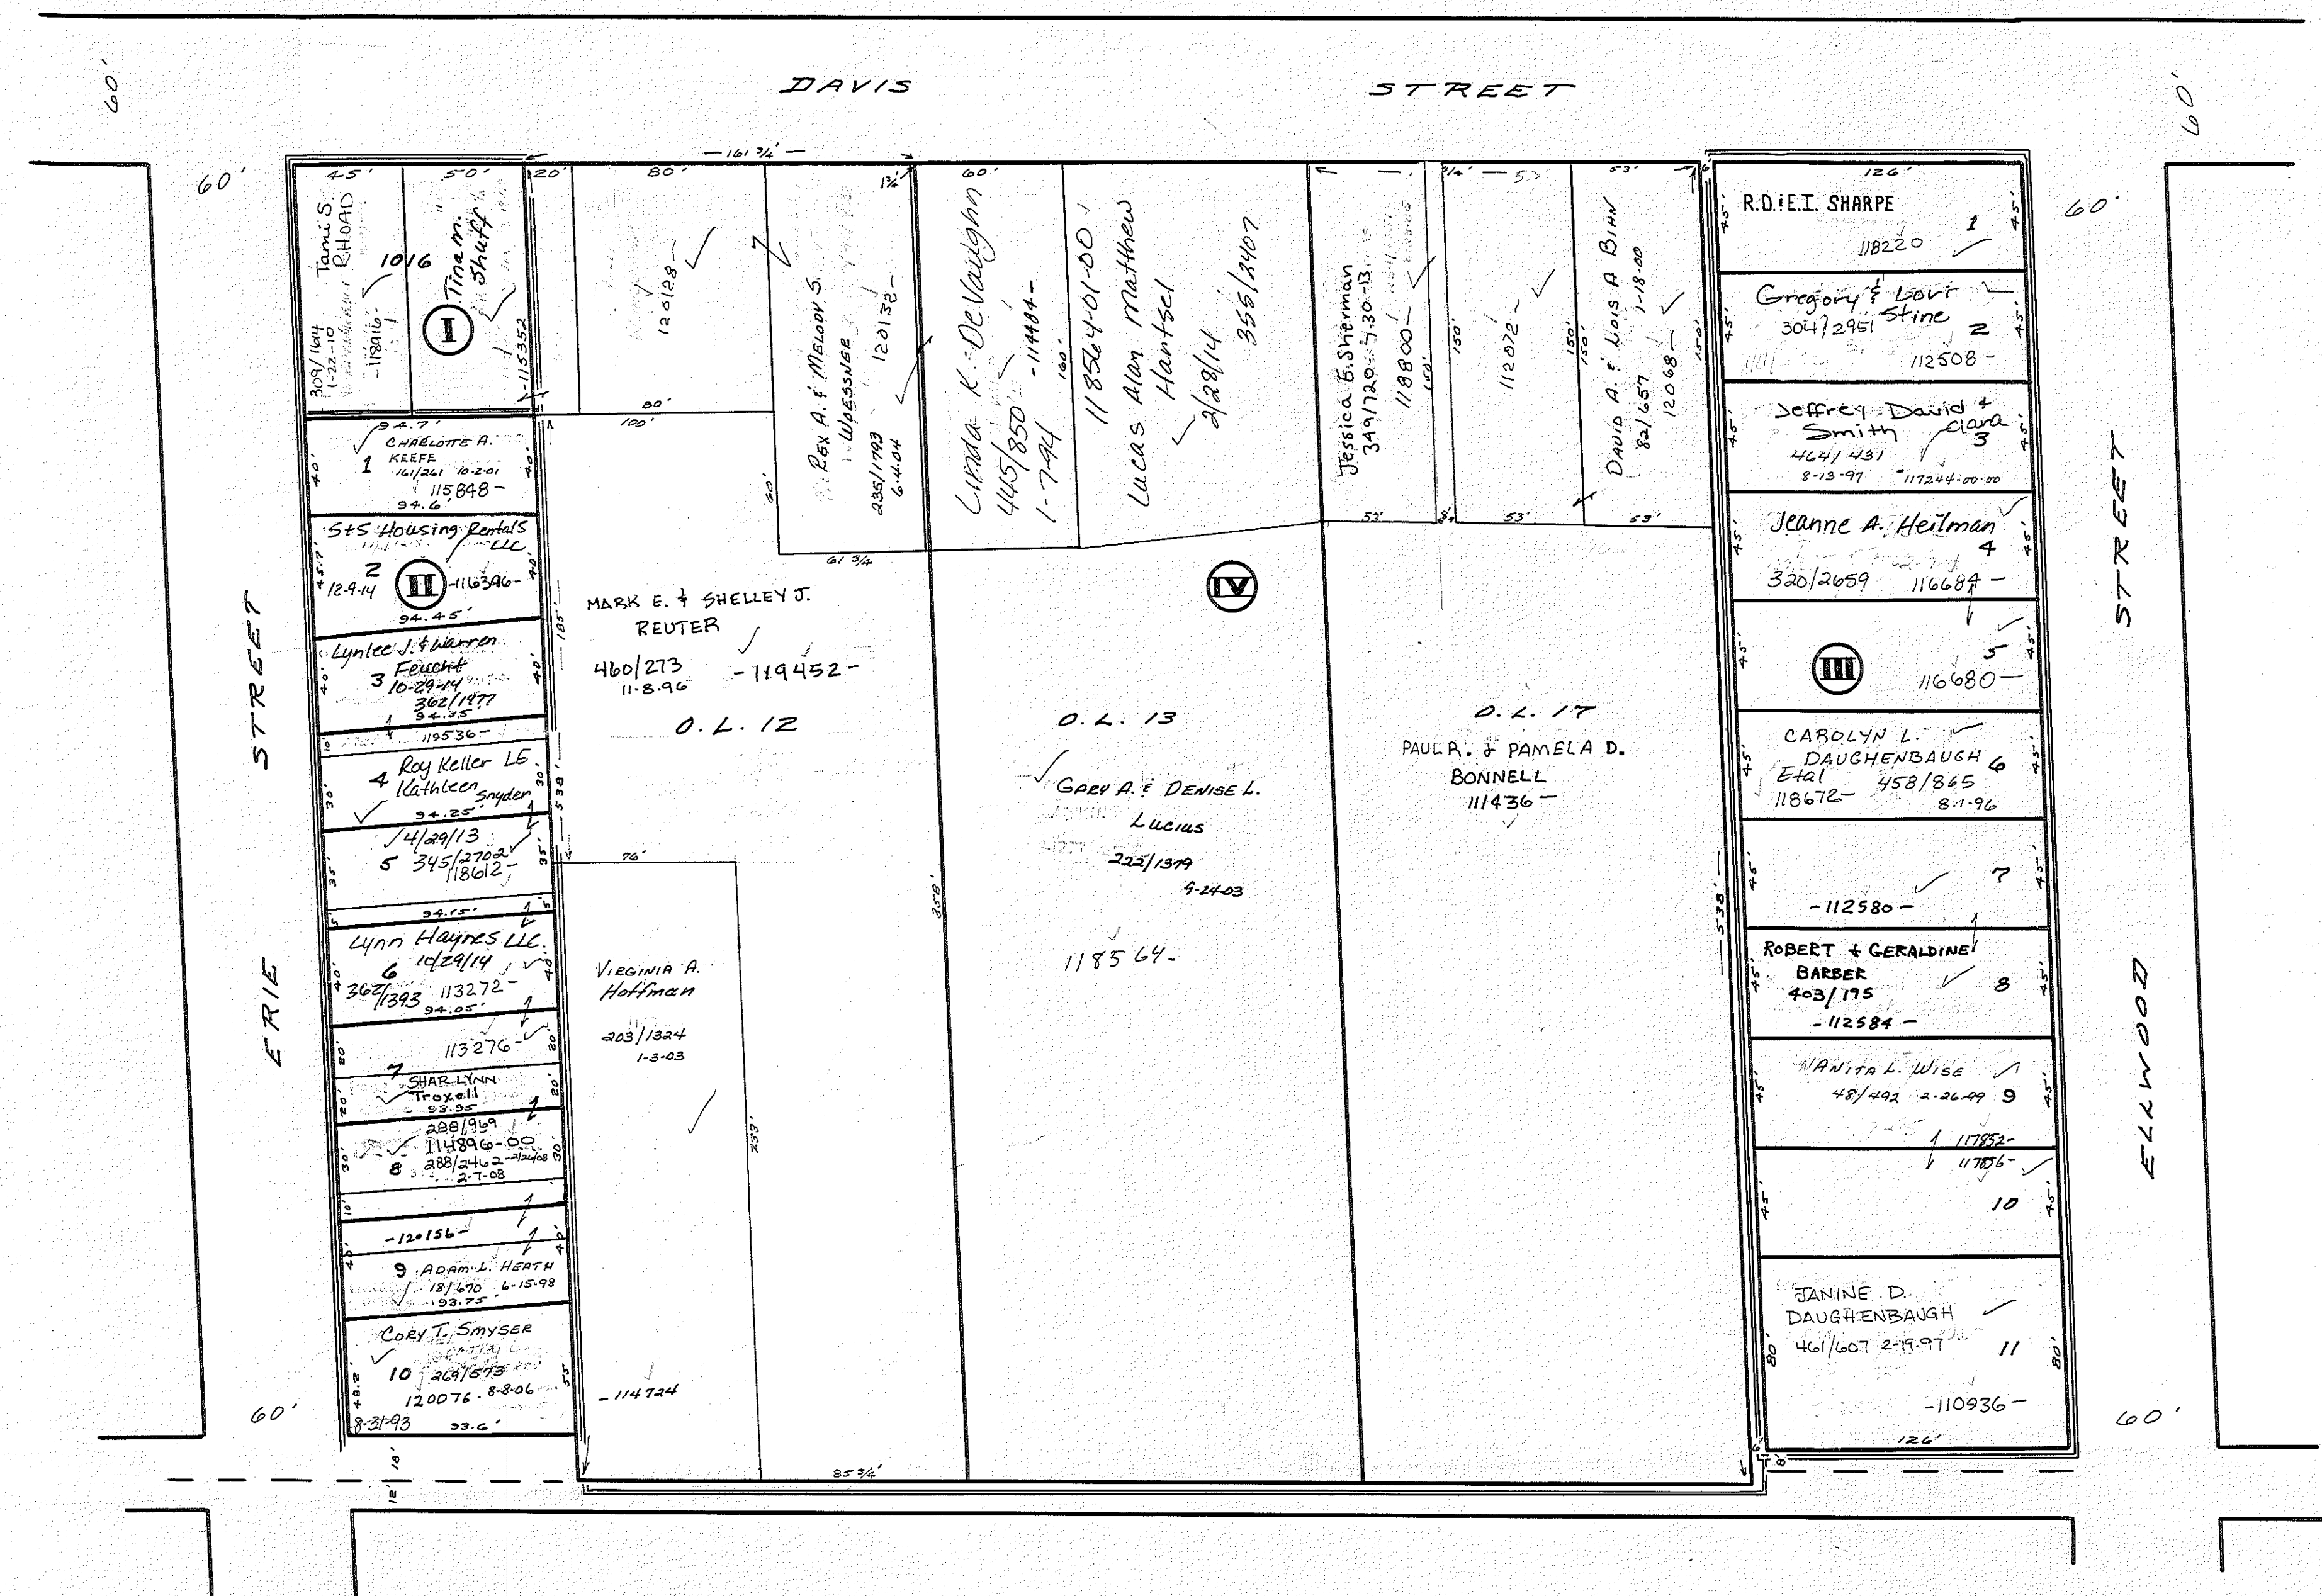 DAVIS STREET
60'
60'
60'
60'
60'
60'
ERIE STREET
ELLWOOD STREET
45'
Tami S.
RHOAD
309/1614
1-22-10
-118916-
1016
50'
Tina M.
Shuff
I
-115352
20'
— 161 3/4' —
80'
120128-
80'
100'
7
1 3/4'
REX A. & MELODY S.
WOESSNER
235/1793
6-4-04
120132-
60'
61 3/4
60'
Linda K. DeVaughn
445/850
1-7-94
-114484-
160'
118564-01-00
Lucas Alan Matthew
Hantsel
2/28/14
355/2407
Jessica E. Sherman
349/720 7.30-13
118800-
150'
53'
150'
53
112072-
150'
53'
53'
150'
DAVID A. & LOIS A BIHN
82/657 1-18-00
12068-
150'
53'
6'
94.7'
CHARLOTTE A.
KEEFE
1
161/261 10-2-01
115848-
40'
40'
94.6'
S+S Housing Rentals
LLC
2
12-9-14
II
-116396-
45.7'
40'
94.45'
Lynlee J. & Warren
Feucht
3
10-29-14
362/1977
40'
40'
94.35'
10'
119536-
Roy Keller LE
4
Kathleen Snyder
30'
30'
94.25'
4/29/13
5 345/2702
118612-
35'
35'
94.15'
5'
5'
Lynn Haynes LLC.
10/29/14
6
362/1393
113272-
40'
40'
94.05'
113276-
20'
20'
7
SHAR LYNN
Troxell
20'
20'
93.95
288/969
114896-00
8 288/2462-2/26/08
2-7-08
30'
30'
10'
-120156-
40'
40'
9 ADAM L. HEATH
18/670 6-15-98
93.75'
CORY T. SMYSER
10 269/573
120076. 8-8-06
8-31-93
48.2
55
93.6'
18'
12'
MARK E. & SHELLEY J.
REUTER
460/273
11-8-96
-119452-
O. L. 12
185'
538'
76'
VIRGINIA A.
Hoffman
203/1324
1-3-03
233'
-114724
85 3/4'
358'
IV
O. L. 13
GARY A. & DENISE L.
Lucius
222/1379
9-24-03
118564-
O. L. 17
PAUL R. & PAMELA D.
BONNELL
111436-
— 538' —
126'
R.D. & E.I. SHARPE
1
118220
45'
45'
Gregory & Lori
Stine
304/2951
2
112508-
45'
45'
Jeffrey David &
Smith Clara
3
464/431
8-13-97
117244-00-00
45'
45'
Jeanne A. Heilman
4
320/2659
116684-
45'
45'
III
5
116680-
45'
45'
CAROLYN L.
DAUGHENBAUGH 6
Etal
458/865
118672-
8-1-96
45'
45'
7
-112580-
45'
45'
ROBERT & GERALDINE
BARBER
403/195
8
-112584-
45'
45'
NANITA L. WISE
48/492 2-26-99 9
117852-
45'
45'
117856-
10
45'
45'
JANINE D.
DAUGHENBAUGH
461/607 2-19-97
11
-110936-
80'
80'
126'
6'
8'